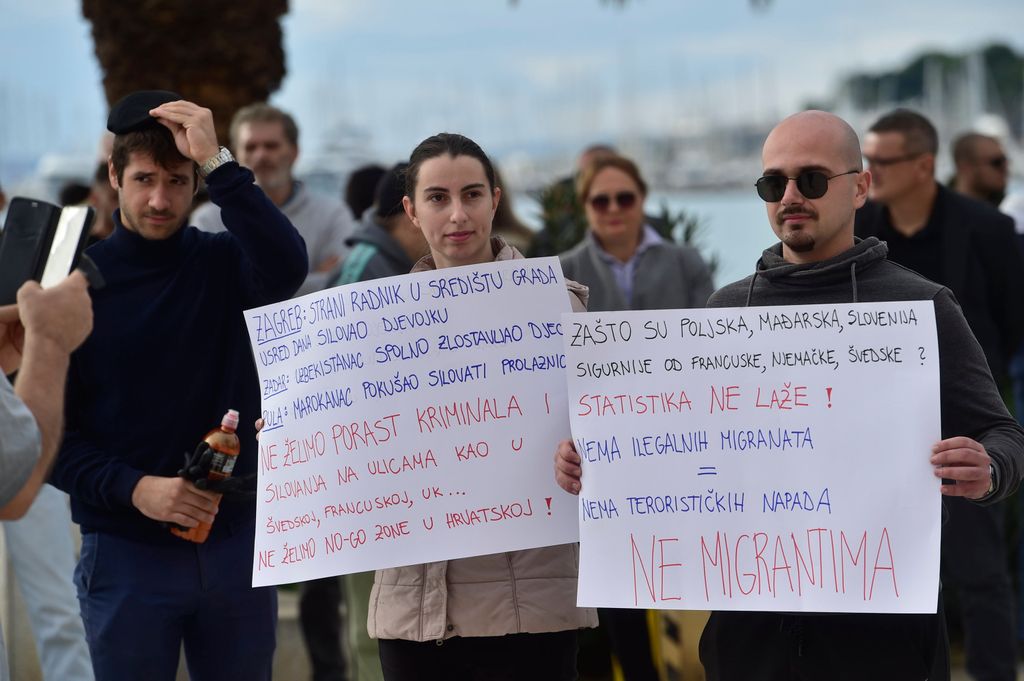 ZAGREB: STRANI RADNIK U SREDIŠTU GRADA
USRED DANA SILOVAO DJEVOJKU
ZADAR: UZBEKISTANAC SPOLNO ZLOSTAVLJAO DJEC
PULA: MAROKANAC POKUŠAO SILOVATI PROLAZNIC
NE ŽELIMO PORAST KRIMINALA I
SILOVANJA NA ULICAMA KAO U
ŠVEDSKOJ, FRANCUSKOJ, UK...
NE ŽELIMO NO-GO ZONE U HRVATSKOJ!
ZAŠTO SU POLJSKA, MAĐARSKA, SLOVENIJA
SIGURNIJE OD FRANCUSKE, NJEMAČKE, ŠVEDSKE?
STATISTIKA NE LAŽE!
NEMA ILEGALNIH MIGRANATA
=
NEMA TERORISTIČKIH NAPADA
NE MIGRANTIMA